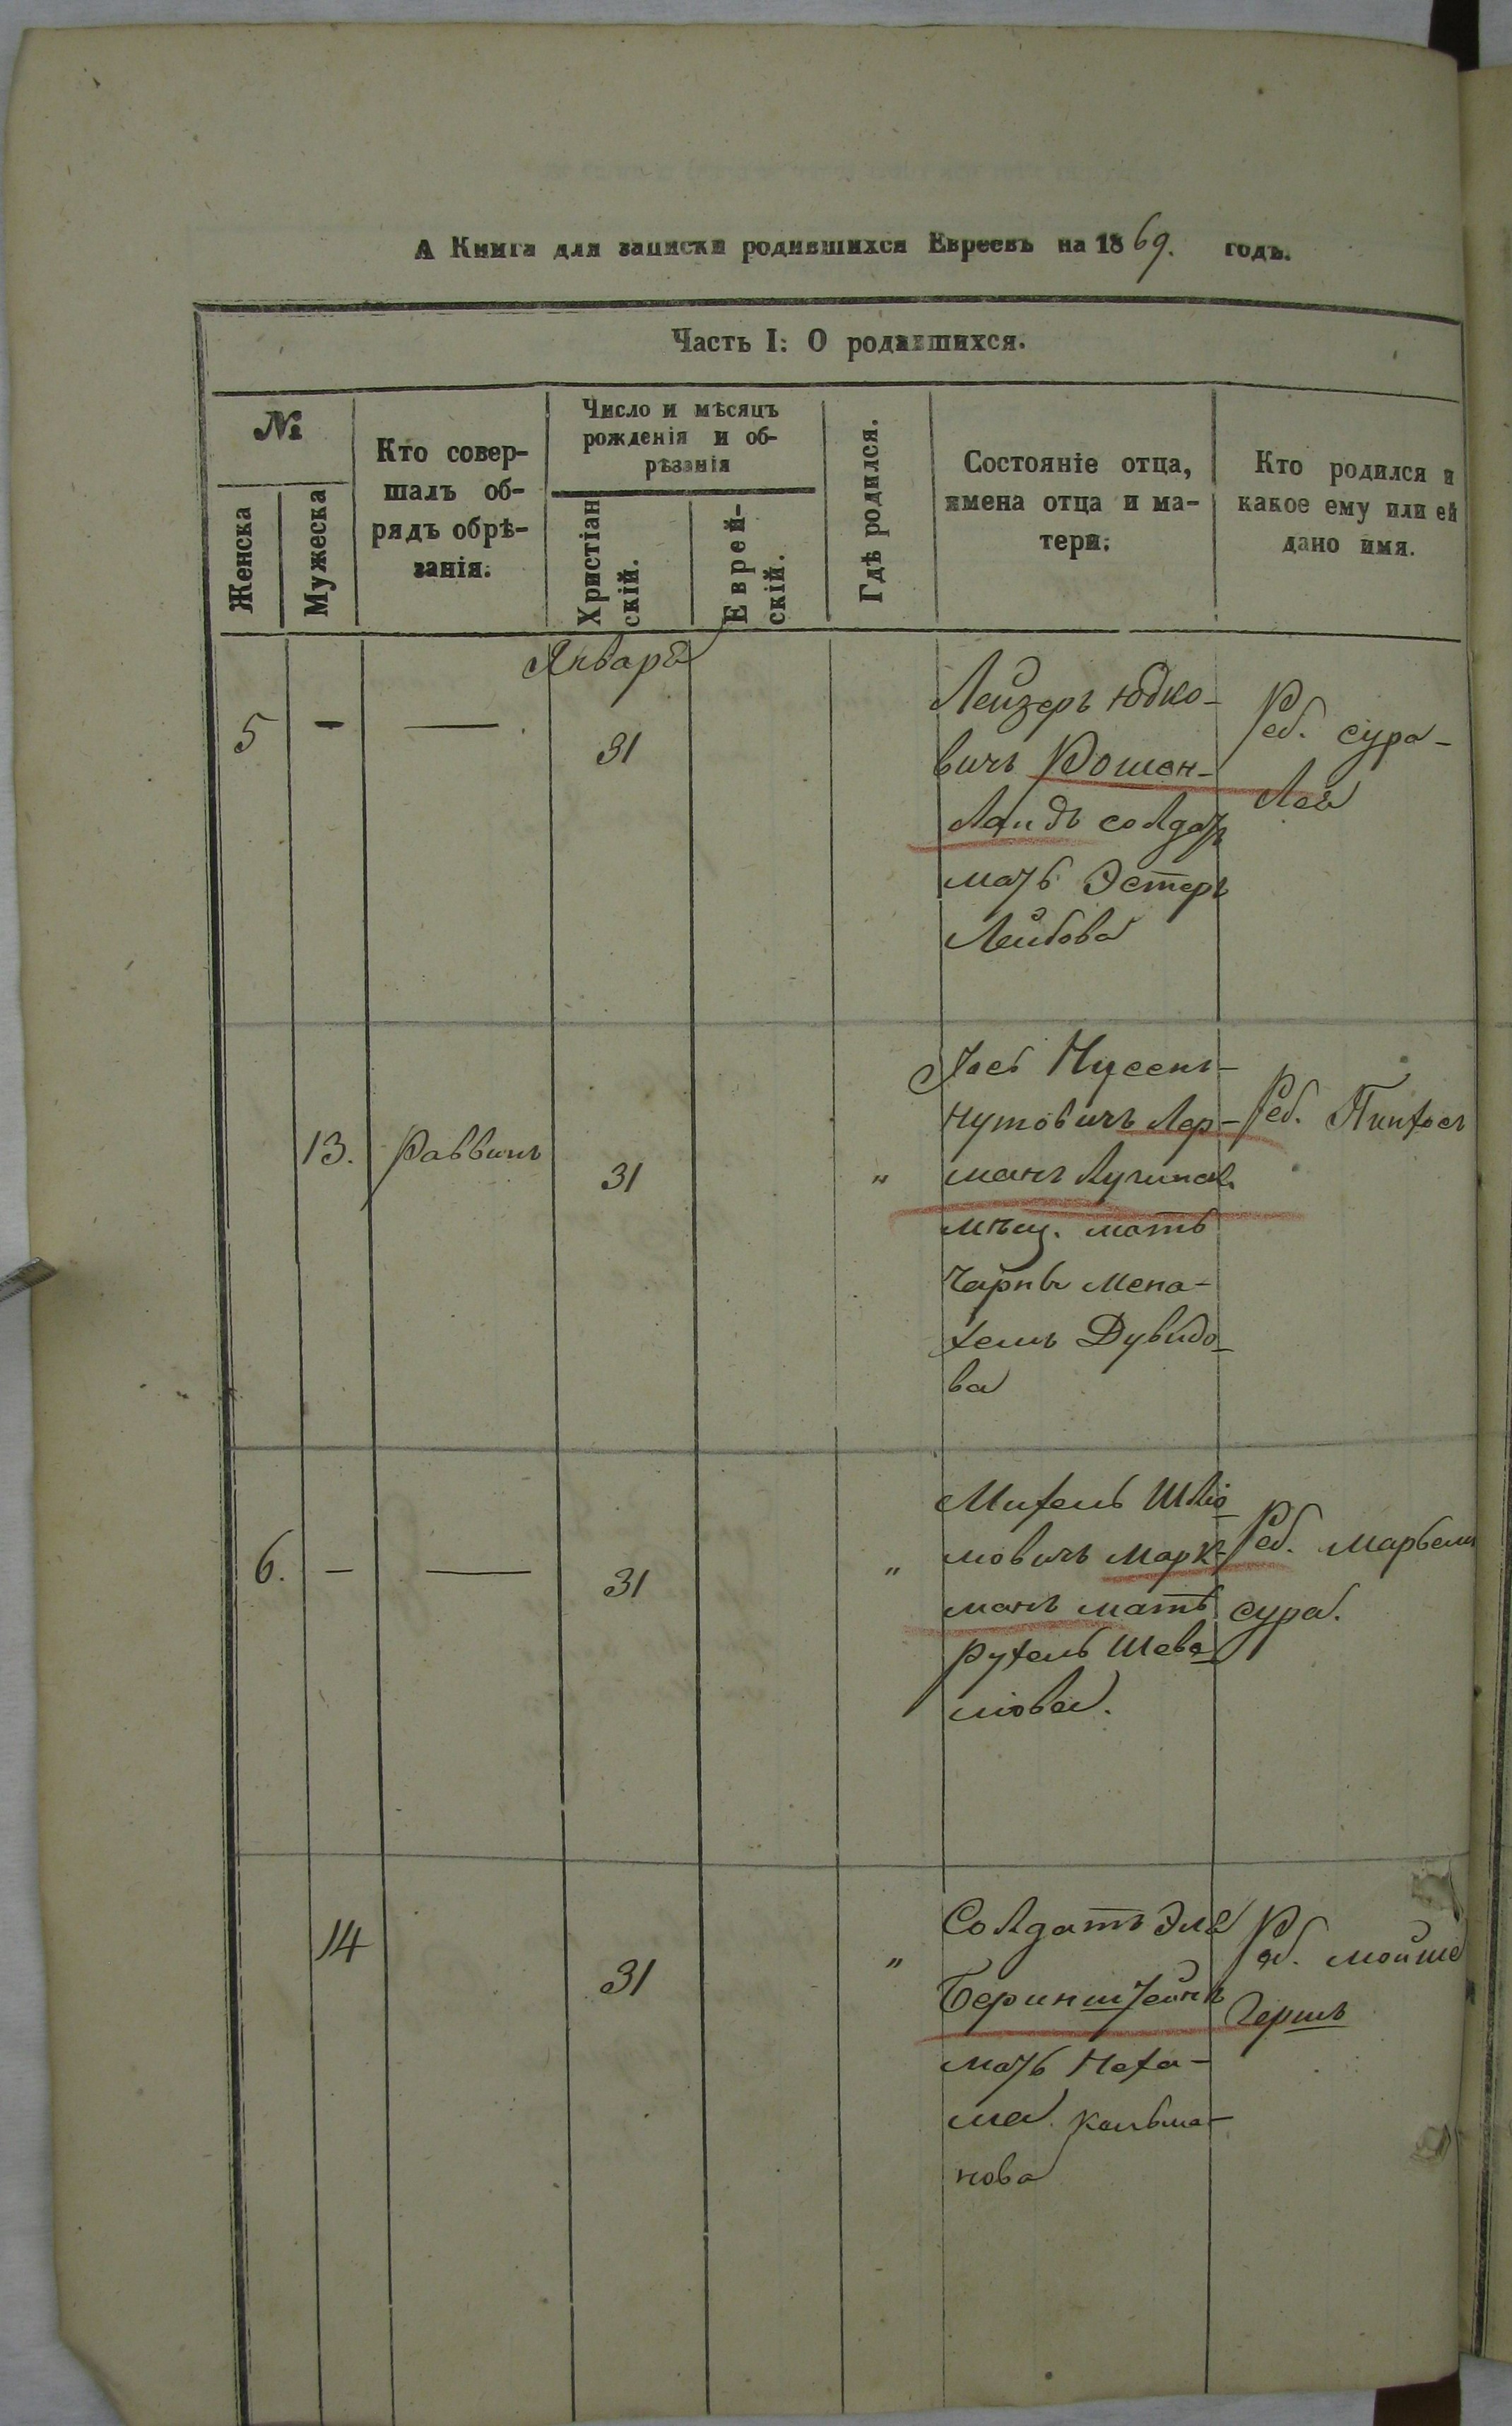 А Книга для записки родившихся Евреевъ на 1869. годъ.
Часть I: О родившихся.
№
Женска
Мужеска
Кто совер-
шалъ об-
рядъ обрѣ-
занія.
Число и мѣсяцъ
рожденія и об-
рѣзанія
Христіан
скій.
Еврей-
скій.
Гдѣ родился.
Состояніе отца,
имена отца и ма-
тери.
Кто родился и
какое ему или ей
дано имя.
Январь
5 - — 31
Лейзеръ Юдко-
вичъ Рошен-
ландъ солдатъ
мать Эстеръ
Лейбова
Реб. сура-
Лея
13. Раввинъ 31 "
Іось Нусенъ-
нутовичъ Лер-
манъ Лучинск.
мѣщ. мать
Чарна Мена-
хемъ Дувидо-
ва
Реб. Пинхосъ
6. - — 31 "
Михель Шліо-
мовичъ Марк-
манъ мать
Рухель
мова.
Реб.
сура.
14 31 "
Солдатъ Эля
Беринштейнъ
мать Неха-
ма Кальма-
нова
Реб. мойше
Гершъ